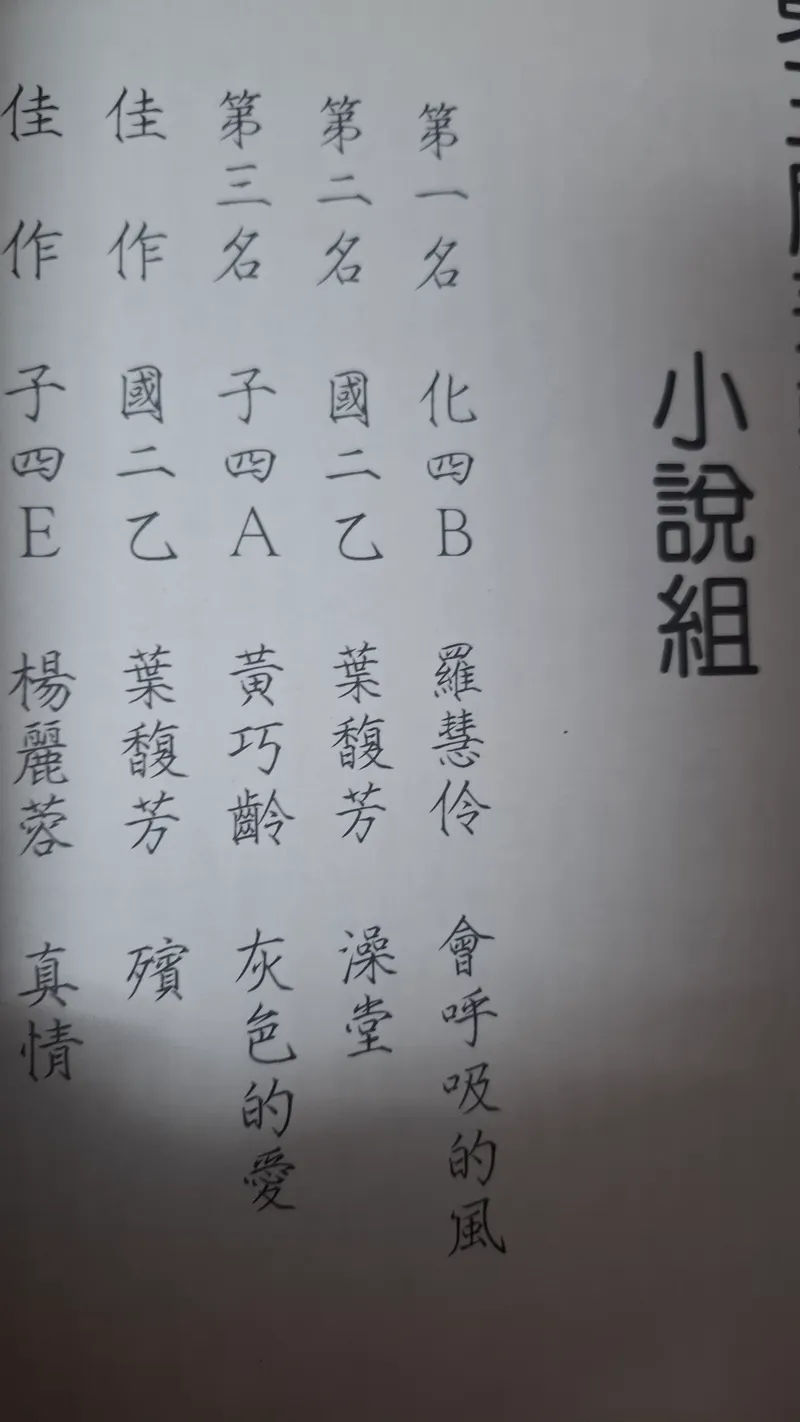 小說組
第一名 化四B 羅慧伶 會呼吸的風
第二名 國二乙 葉馥芳 澡堂
第三名 子四A 黃巧齡 灰色的愛
佳作 國二乙 葉馥芳 殯
佳作 子四E 楊麗蓉 真情